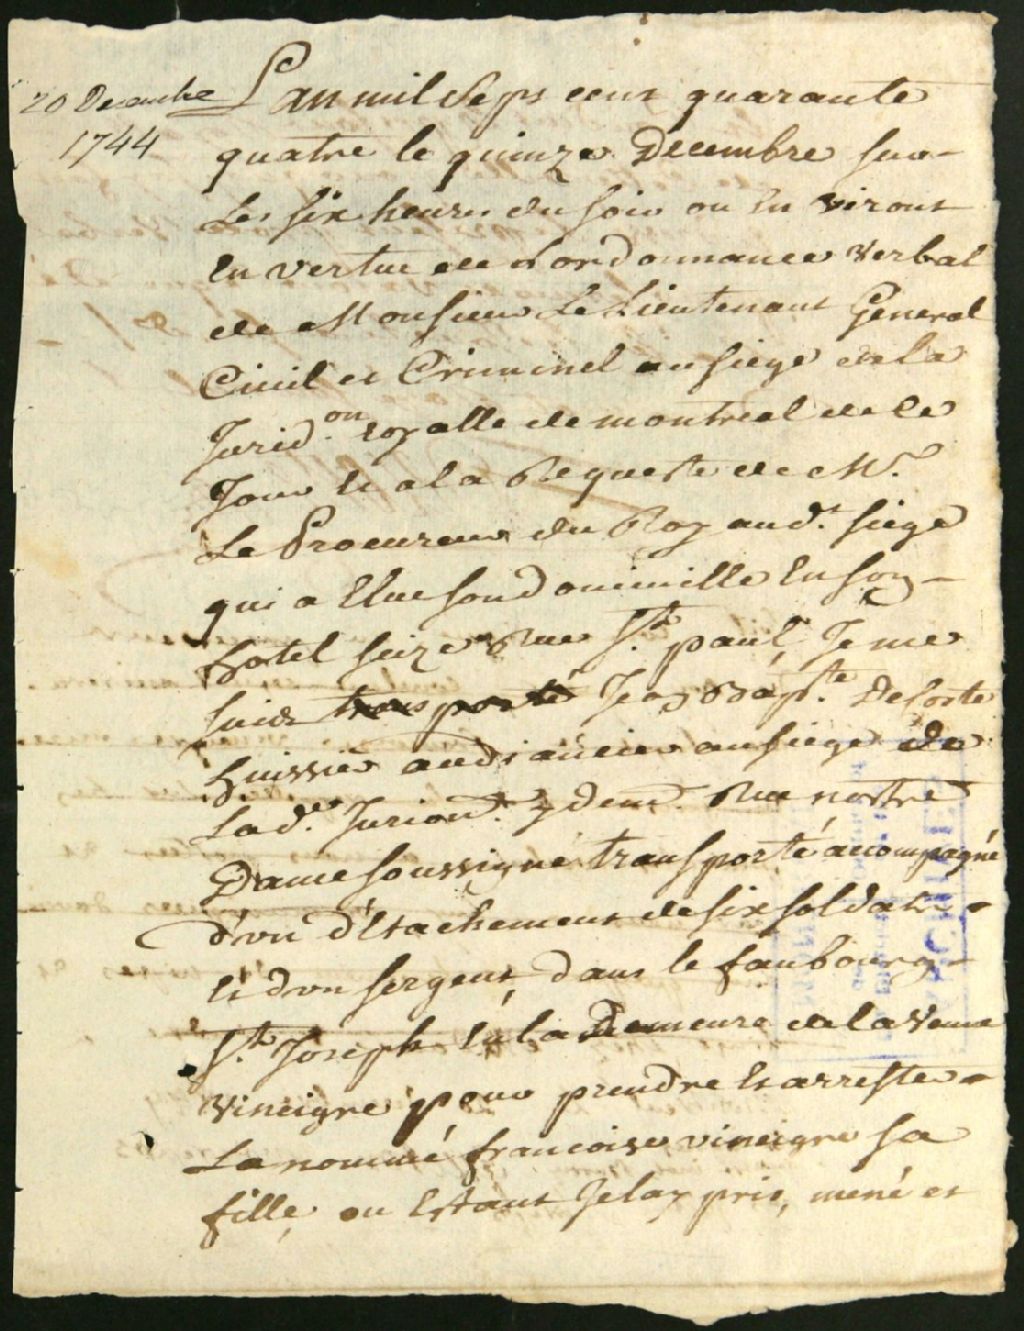 20 Decembre
1744
L'an mil Sept cent quarante
quatre le quinze Decembre sur
Les six heures du soir ou En viront
En vertue de Lordonnance verbal
de Monsieur Le Lieutenant General
Ciuil et Criminel au siege de la
Jurid.on royalle de montreal de Ce
Jour Et a la Requeste de Mr.
Le Procureur du Roy aud.t siege
qui a Elue son domicille En son
hotel seize Rue St. paul, Je me
suis transporté Jean Bap.te Decoste
huissier audiancier au siege de
Lad.e Jurion. y dem.t Rue nostre
Dame soussigné transporté acompagné
d'un d'Etachement de six soldats
Et d'un sergent, dans le faubourg
St. Joseph En la Demeure de la Veuve
vineigre pour prendre Et arrester
La nommé francoise vineigre sa
fille, ou Estant Je lay pris, mené et